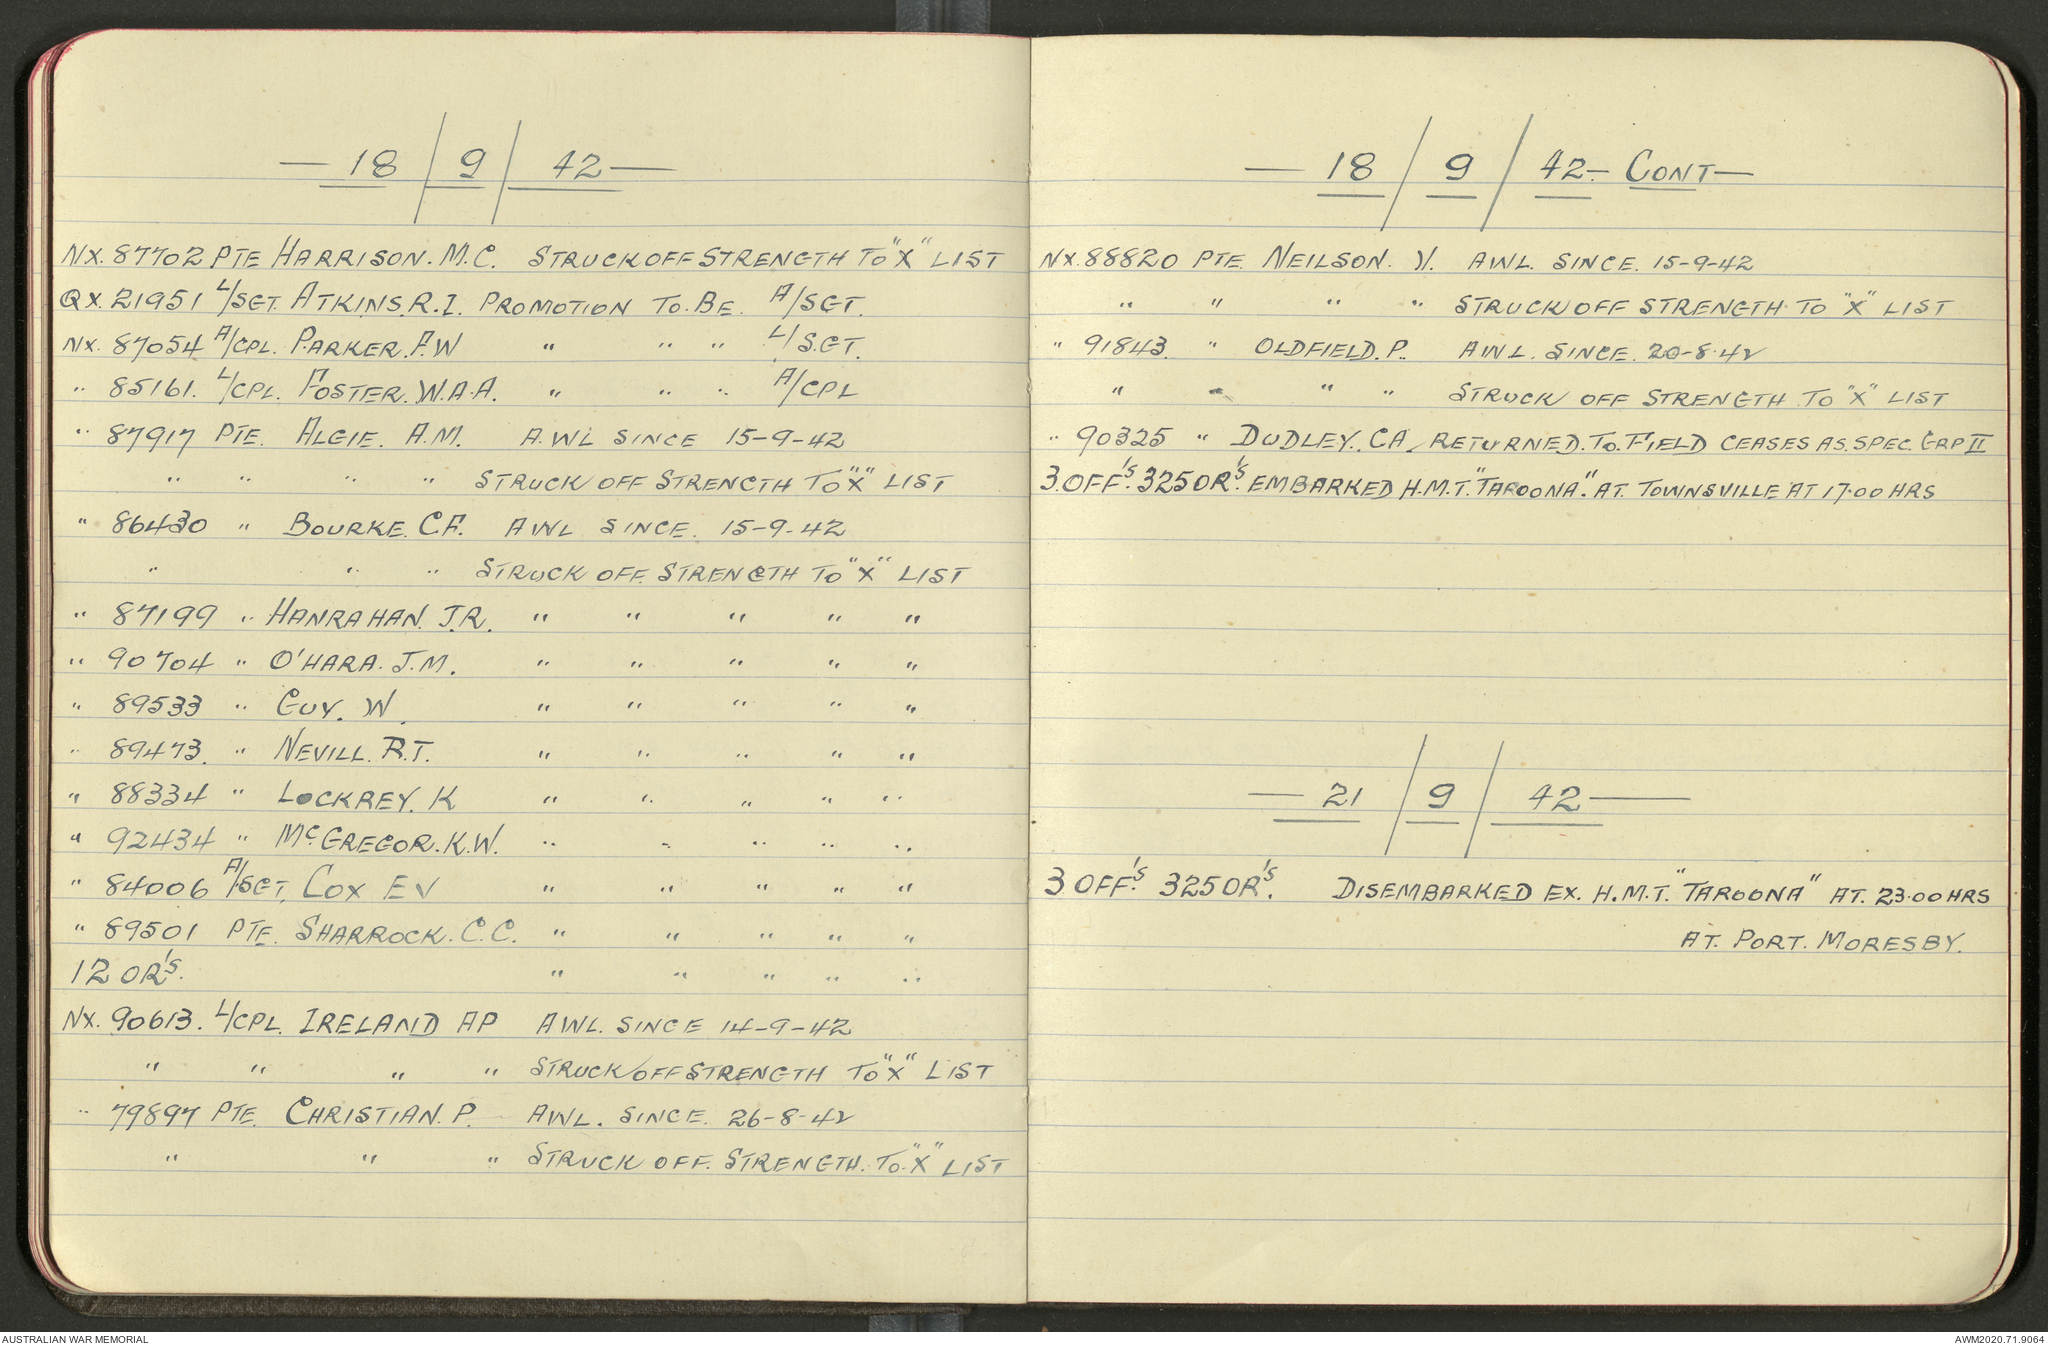 — 18 / 9 / 42 —
NX. 87702 PTE HARRISON. M.C. STRUCK OFF STRENGTH TO "X" LIST
QX. 21951 L/SGT. ATKINS. R.I. PROMOTION TO. BE. A/SGT.
NX. 87054 A/CPL. PARKER. A.W " " " L/SGT.
" 85161. L/CPL. FOSTER. W.A.A. " " " A/CPL
" 87917 PTE. ALGIE. A.M. A.WL SINCE 15-9-42
" " " " STRUCK OFF STRENGTH TO "X" LIST
" 86430 " BOURKE. C.F. AWL SINCE. 15-9-42
" " " STRUCK OFF. STRENGTH TO "X" LIST
" 87199 " HANRAHAN. J.R. " " " " "
" 90704 " O'HARA. J.M. " " " " "
" 89533 " GUY. W. " " " " "
" 89473. " NEVILL. R.T. " " " " "
" 88334 " LOCKREY. K " " " " "
" 92434 " McGREGOR. K.W. " " " " "
" 84006 A/SGT, COX EV " " " " "
" 89501 PTE. SHARROCK. C.C. " " " " "
12 OR'S. " " " " "
NX. 90613. L/CPL. IRELAND AP AWL. SINCE 14-9-42
" " " " STRUCK OFF STRENGTH TO "X" LIST
" 79897 PTE. CHRISTIAN. P. AWL. SINCE. 26-8-42
" " " STRUCK OFF. STRENGTH. TO. "X" LIST
— 18 / 9 / 42 – CONT —
NX. 88820 PTE. NEILSON. V. AWL. SINCE. 15-9-42
" " " " STRUCK OFF STRENGTH TO "X" LIST
" 91843. " OLDFIELD. P. AWL. SINCE. 20-8-42
" " " " STRUCK OFF STRENGTH TO "X" LIST
" 90325 " DUDLEY. C.A. RETURNED. TO. FIELD CEASES AS. SPEC. GRP II
3 OFF'S. 325 OR'S. EMBARKED H.M.T. "TAROONA". AT. TOWNSVILLE AT 17.00 HRS
— 21 / 9 / 42 —
3 OFF'S. 325 OR'S. DISEMBARKED EX. H.M.T. "TAROONA" AT. 23.00 HRS
AT. PORT. MORESBY.
AUSTRALIAN WAR MEMORIAL
AWM2020.71.9064